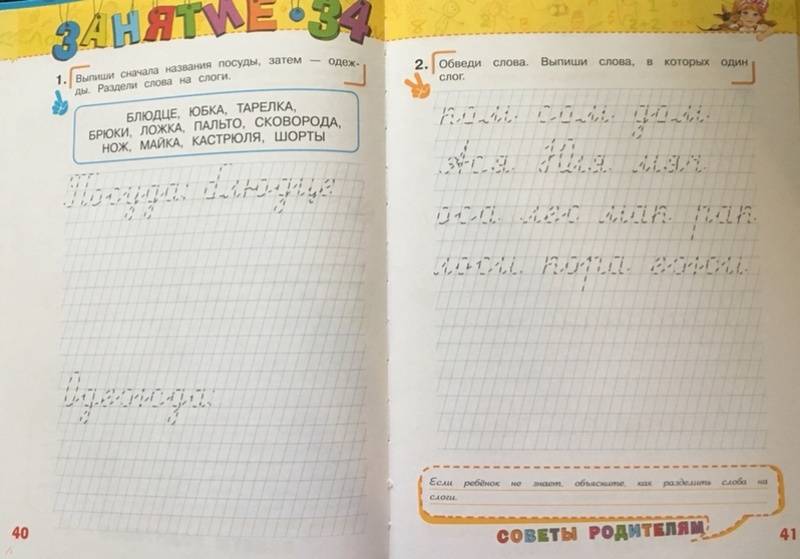 ЗАНЯТИЕ • 34
1. Выпиши сначала названия посуды, затем — одеж-
ды. Раздели слова на слоги.
БЛЮДЦЕ, ЮБКА, ТАРЕЛКА,
БРЮКИ, ЛОЖКА, ПАЛЬТО, СКОВОРОДА,
НОЖ, МАЙКА, КАСТРЮЛЯ, ШОРТЫ
Посуда: блюдце
Одежда:
40
2. Обведи слова. Выпиши слова, в которых один
слог.
дом
Ася Юля мяч
оса лес
пора
Если ребёнок не знает, объясните, как разделить слова на
слоги.
СОВЕТЫ РОДИТЕЛЯМ
41